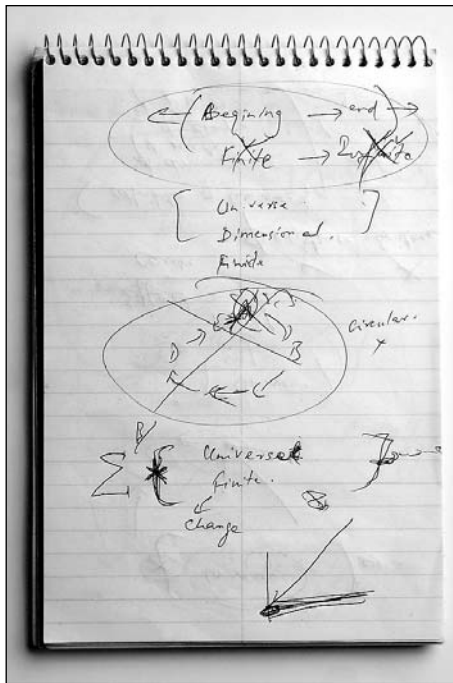 ← ( Begining → end →
Finite → Infinite
[ Universe ]
Dimensional.
Finite
A
D B
C
Circular.
x
B/
Σ * { Universal }
finite.
change